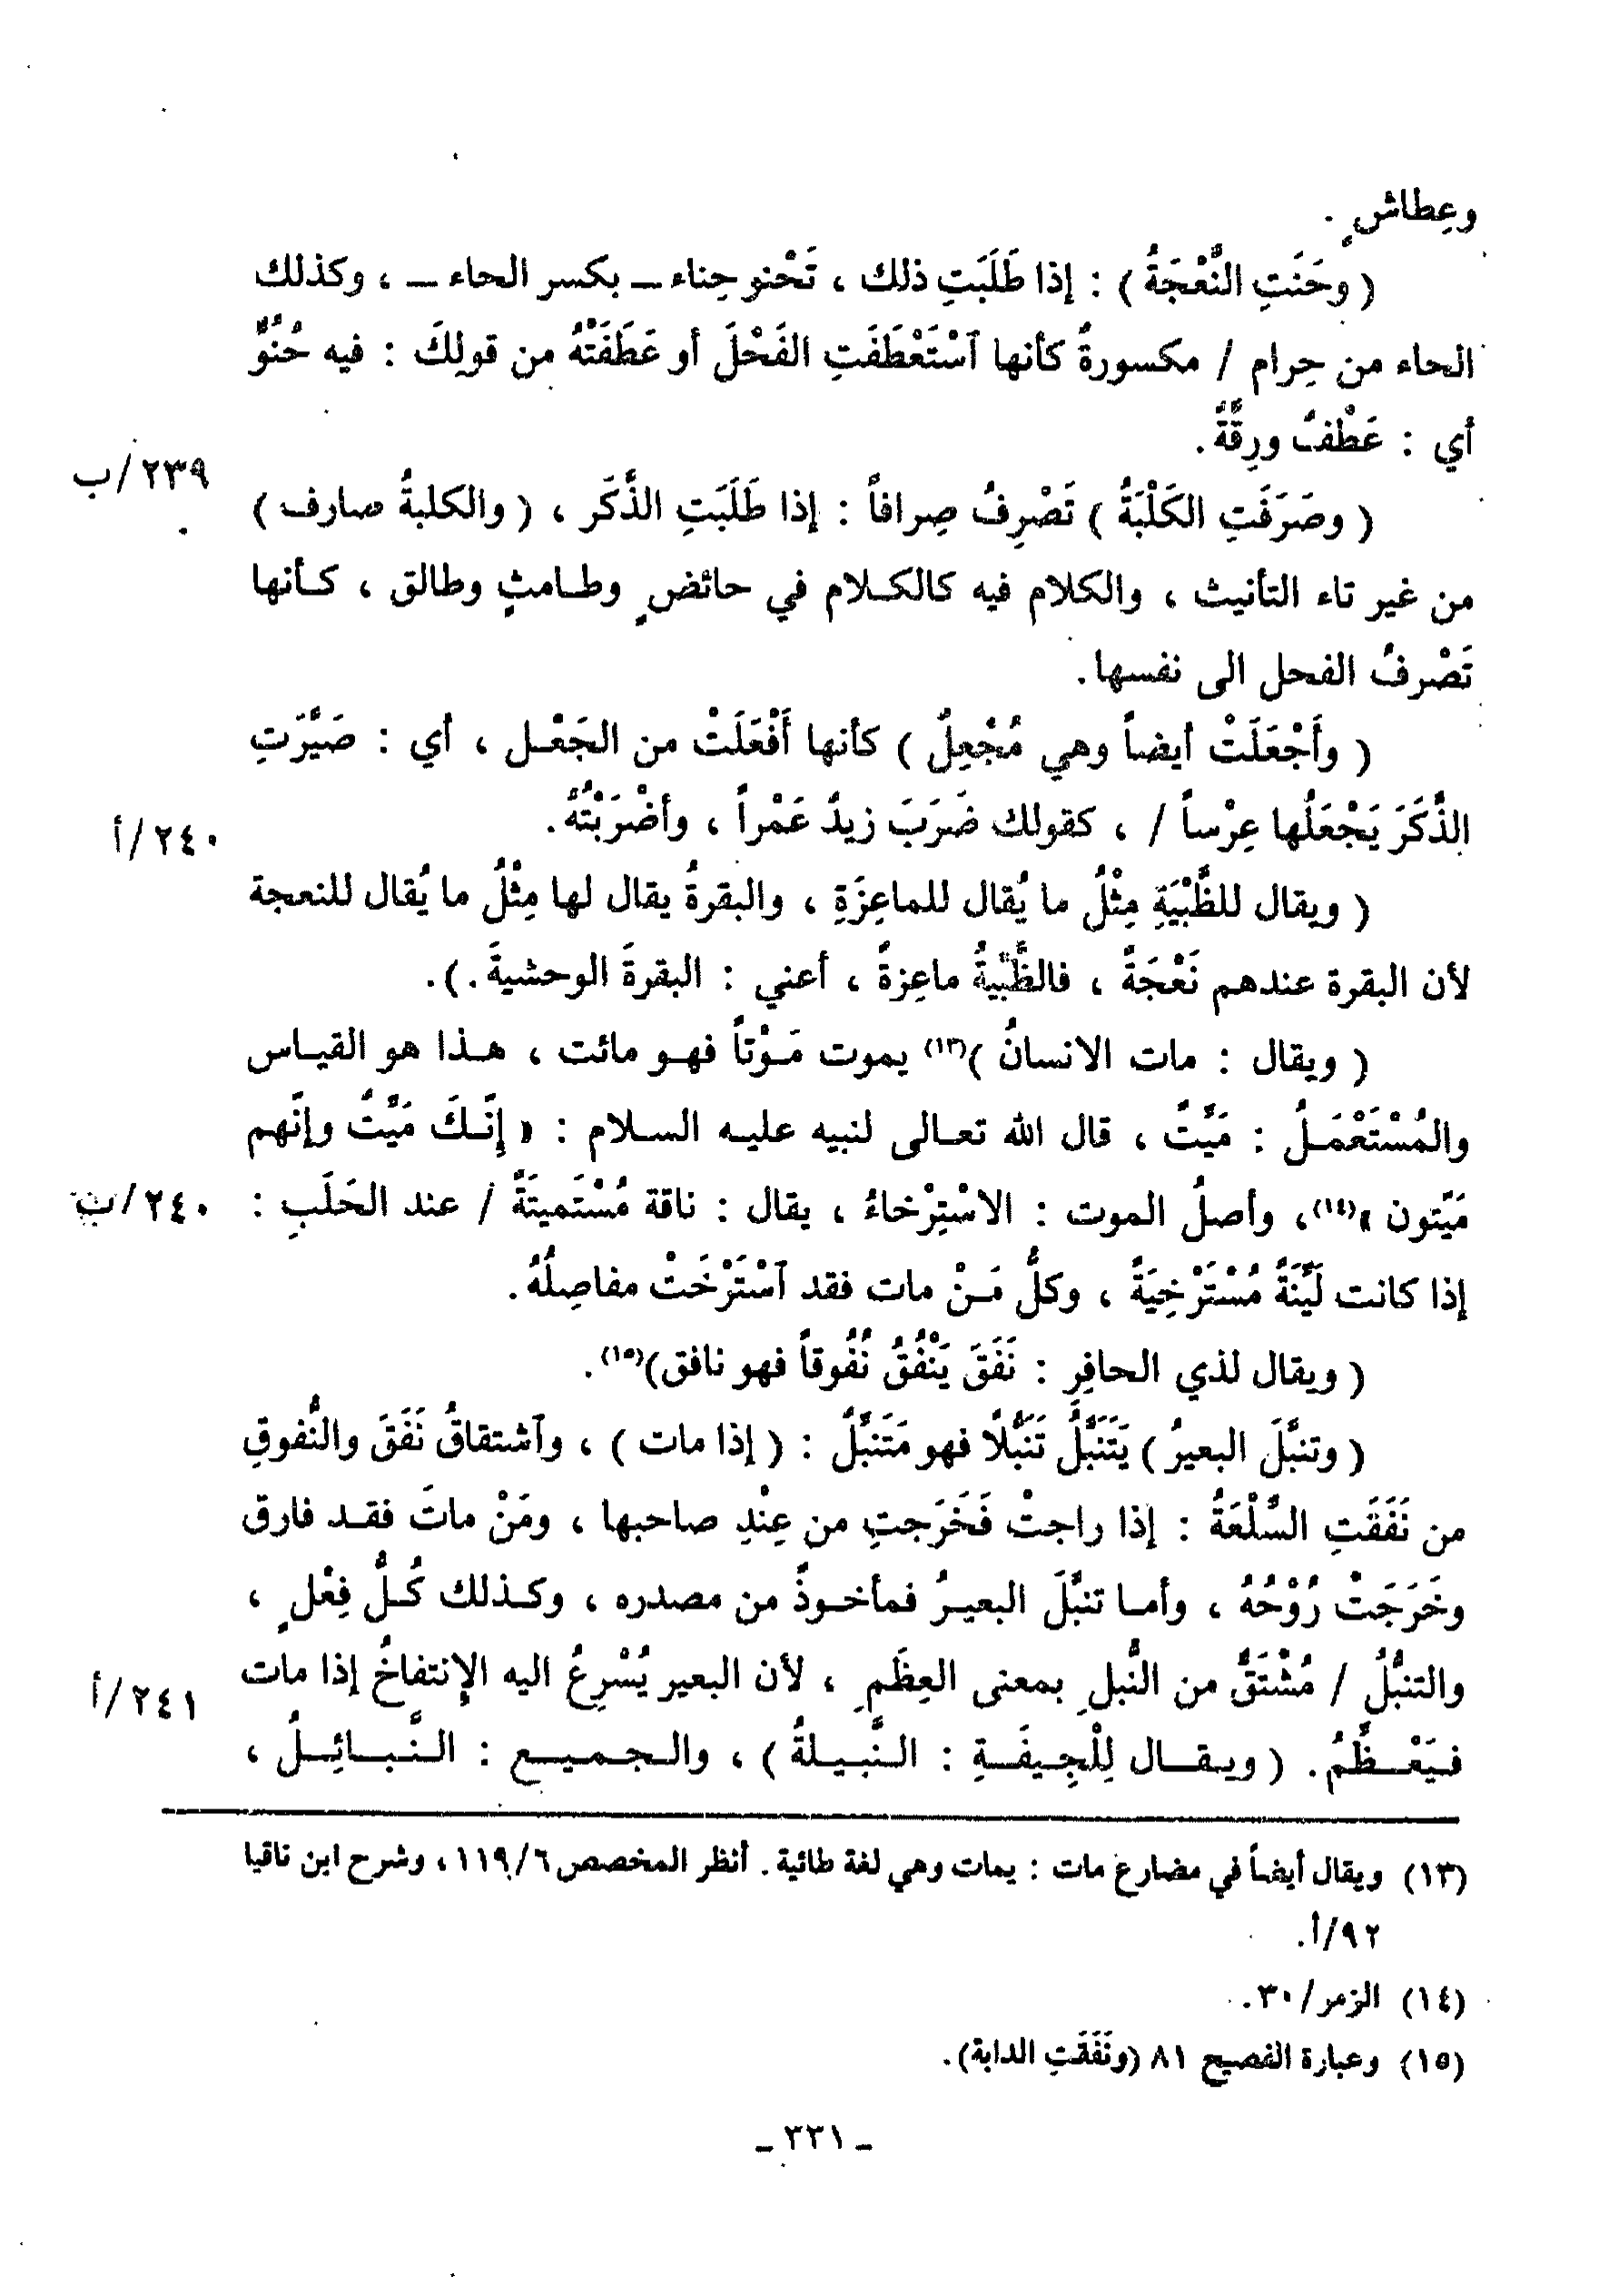 وعِطاشٍ .
( وحَنَتِ النَّعْجَةُ ) : إذا طَلَبَتِ ذلك ، تَحْنو حِناء ــ بكسر الحاء ــ ، وكذلك
الحاء من حِرام / مكسورةٌ كأنها آسْتَعْطَفَتِ الفَحْلَ أو عَطَفَتْهُ من قولِكَ : فيه حُنُوٌّ
أي : عَطْفٌ ورِقَّةٌ .
٢٣٩/ب
( وصَرَفَتِ الكَلْبَةُ ) تَصْرِفُ صِرافاً : إذا طَلَبَتِ الذَّكَر ، ( والكلبةُ صارف )
من غير تاء التأنيث ، والكلام فيه كالكلام في حائضٍ وطامثٍ وطالق ، كأنها
تَصْرفُ الفحل الى نفسها .
( وأَجْعَلَتْ أيضاً وهي مُجْعِلٌ ) كأنها أَفْعَلَتْ من الجَعْل ، أي : صَيَّرَتِ
الذَّكَرَ يَجْعَلُها عِرْساً / ، كقولك ضَرَبَ زيدٌ عَمْراً ، وأضْرَبْتُهُ .
٢٤٠/أ
( ويقال للظَّبْيَةِ مِثْلُ ما يُقال للماعِزَةِ ، والبقرةُ يقال لها مِثْلُ ما يُقال للنعجة
لأن البقرة عندهم نَعْجَةٌ ، فالظَّبْيةُ ماعِزةٌ ، أعني : البقرةَ الوحشيةَ . ) .
( ويقال : مات الانسانُ )(١٣) يموت مَوْتاً فهو مائت ، هذا هو القياس
والمُسْتَعْمَلُ : مَيِّتٌ ، قال الله تعالى لنبيه عليه السلام : « إِنَّكَ مَيِّتٌ وإنَّهم
مَيِّتون »(١٤)، وأصلُ الموت : الاسْتِرْخاءُ ، يقال : ناقة مُسْتَميتَةٌ / عند الحَلَبِ :
٢٤٠/ب
إذا كانت لَيِّنَةٌ مُسْتَرْخِيَةٌ ، وكلُّ مَنْ مات فقد آسْتَرْخَتْ مفاصِلُهُ .
( ويقال لذي الحافِرِ : نَفَقَ يَنْفُقُ نُفُوقاً فهو نافق)(١٥) .
( وتنبَّلَ البعيرُ ) يَتَنَبَّلُ تَنَبُّلًا فهو مَتَنَبِّلٌ : ( إذا مات ) ، وآشتقاقُ نَفَقَ والنُّفوقِ
من نَفَقَتِ السِّلْعَةُ : إذا راجتْ فَخَرَجتِ من عِنْدِ صاحبها ، ومَنْ ماتَ فقد فارق
وخَرَجَتْ رُوْحُهُ ، وأما تنبَّلَ البعيرُ فمأخوذٌ من مصدره ، وكذلك كُلُّ فِعْلٍ ،
والتنبُّلُ / مُشْتَقٌّ من النُّبلِ بمعنى العِظَمِ ، لأن البعير يُسْرِعُ اليه الإنتفاخُ إذا مات
٢٤١/أ
فيَعْظُمُ . ( ويقال لِلْجِيفَةِ : النَّبيلةُ ) ، والجميع : النَّبائِلُ ،
(١٣) ويقال أيضاً في مضارع مات : يمات وهي لغة طائية . أنظر المخصص ٦/١١٩، وشرح ابن ناقيا
٩٢/أ .
(١٤) الزمر/٣٠ .
(١٥) وعبارة الفصيح ٨١ (ونَفَقَتِ الدابة) .
ـ ٣٣١ ـ